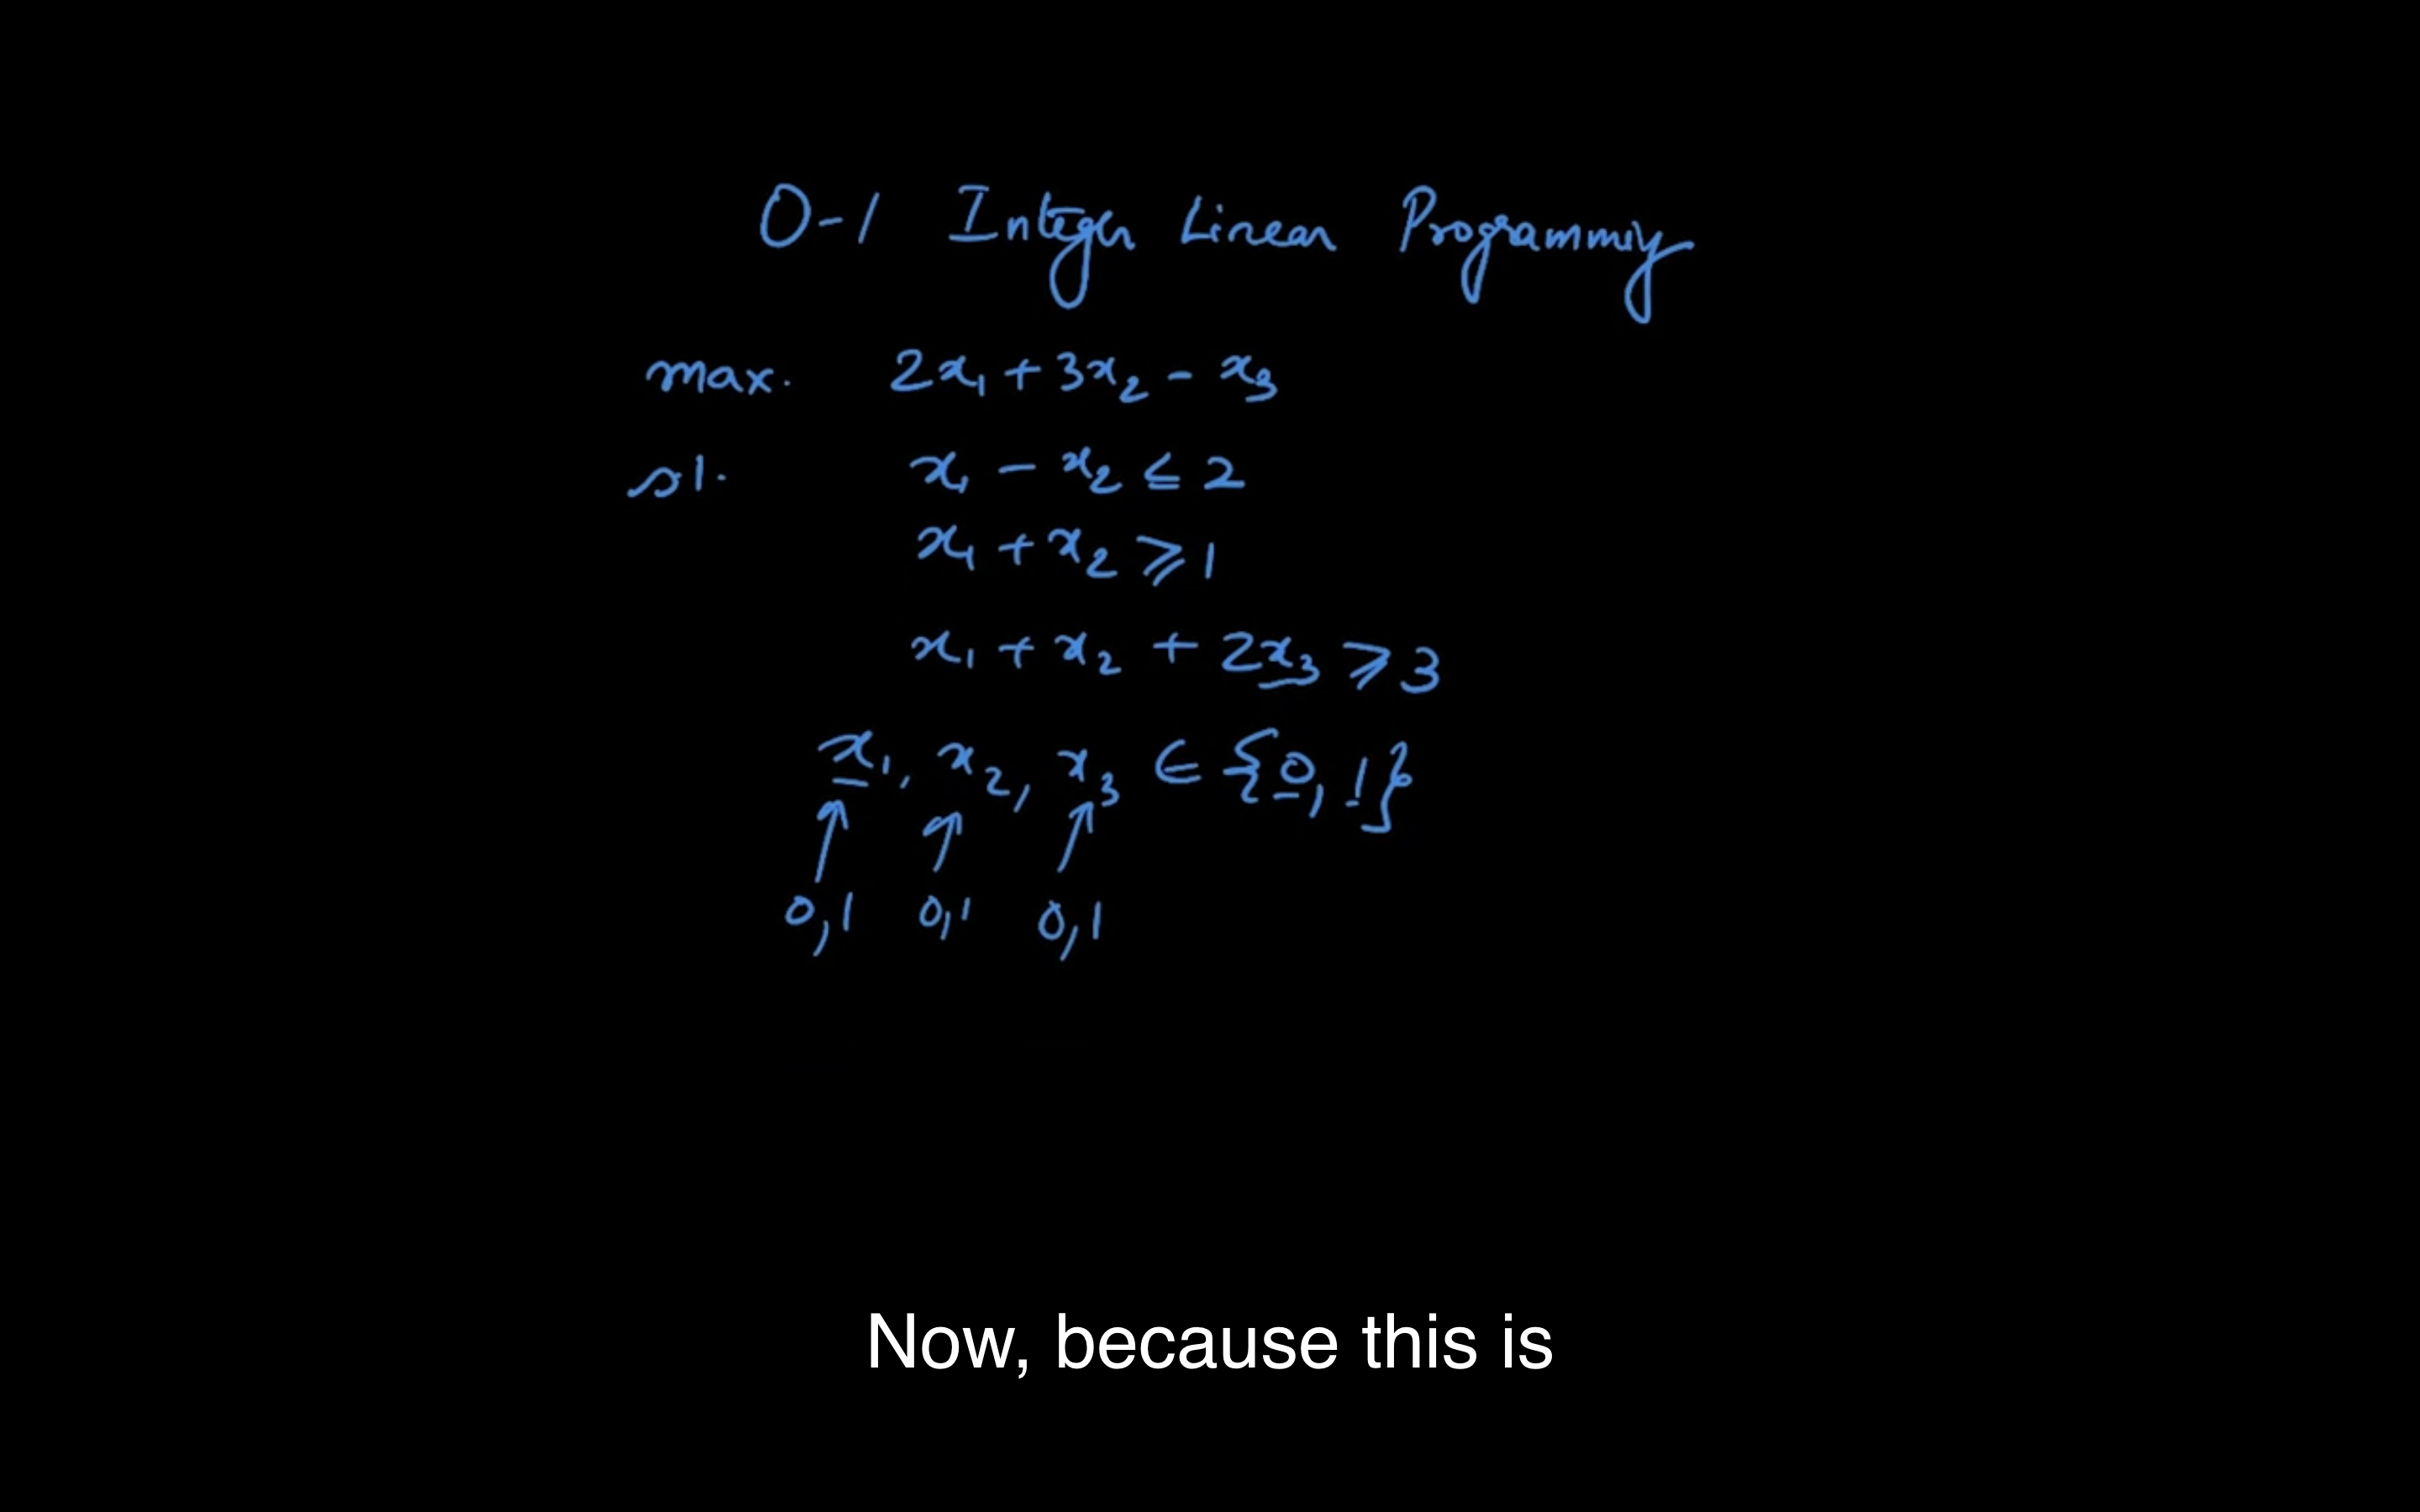 0-1 Integer Linear Programming
max. 2x₁ + 3x₂ - x₃
st. x₁ - x₂ ≤ 2
x₁ + x₂ ≥ 1
x₁ + x₂ + 2x₃ ≥ 3
x₁, x₂, x₃ ∈ {0, 1}
0,1 0,1 0,1
Now, because this is